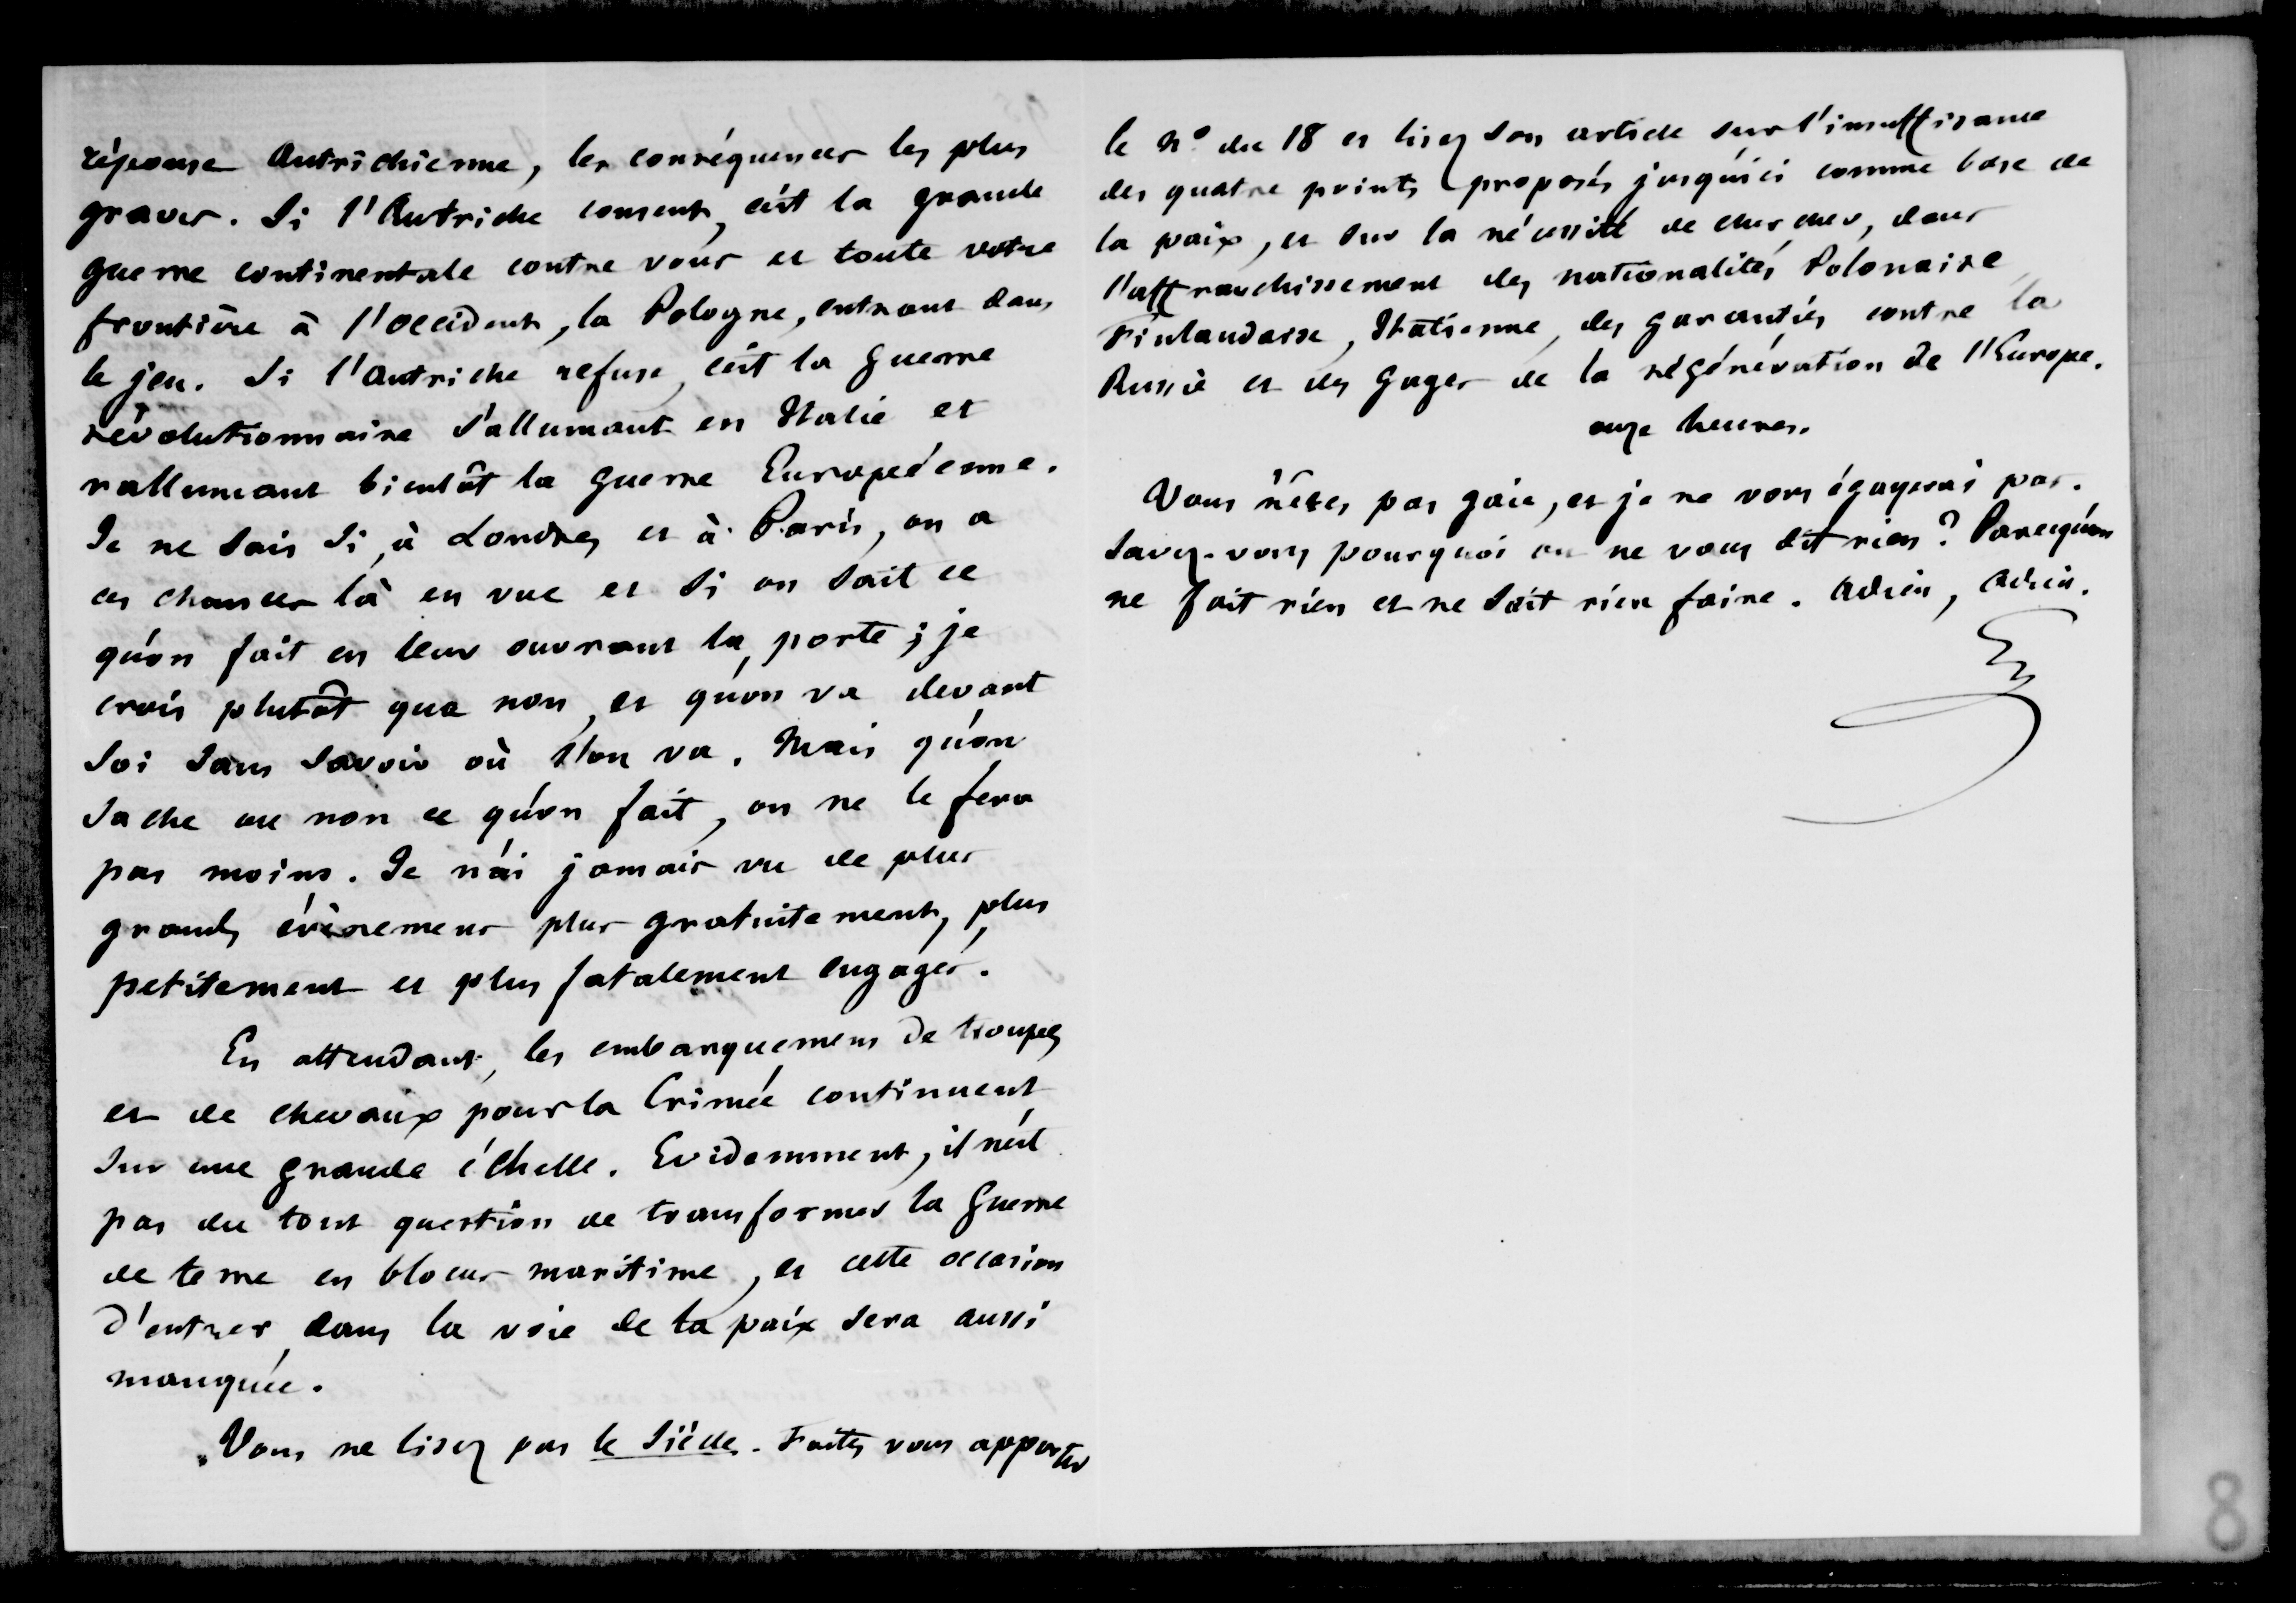 réponse Autrichienne, les conséquences les plus
graves. Si l'Autriche consent, c'est la grande
guerre continentale contre vous et toute votre
frontière à l'occident, la Pologne, entrant dans
le jeu. Si l'Autriche refuse, c'est la guerre
révolutionnaire s'allumant en Italie et
rallumant bientôt la guerre Européenne.
Je ne sais si, à Londres et à Paris, on a
ces chances là en vue et si on sait ce
qu'on fait en leur ouvrant la porte ; je
crois plutôt que non, et qu'on va devant
soi sans savoir où l'on va. Mais qu'on
sache ou non ce qu'on fait, on ne le fera
pas moins. Je n'ai jamais vu de plus
grands évènemens plus gratuitement, plus
petitement et plus fatalement engagés.
En attendant, les embarquemens de troupes
et de chevaux pour la Crimée continuent
sur une grande échelle. Evidemment, il n'est
pas du tout question de transformer la guerre
de terre en blocus maritime, et cette occasion
d'entrer dans la voie de la paix sera aussi
manquée.
Vous ne lisez pas le Siècle. Faites vous apporter
le N° du 18 et lisez son article sur l'insuffisance
des quatre points proposés jusqu'ici comme base de
la paix, et sur la nécessité de chercher, dans
l'affranchissement des nationalités Polonaise,
Finlandaise, Italienne, des garanties contre la
Russie et des gages de la régénération de l'Europe.
onze heures.
Vous n'êtes pas gaie, et je ne vous égayerai pas.
Savez-vous pourquoi on ne vous dit rien ? Parcequ'on
ne fait rien et ne sait rien faire. Adieu, Adieu.
8